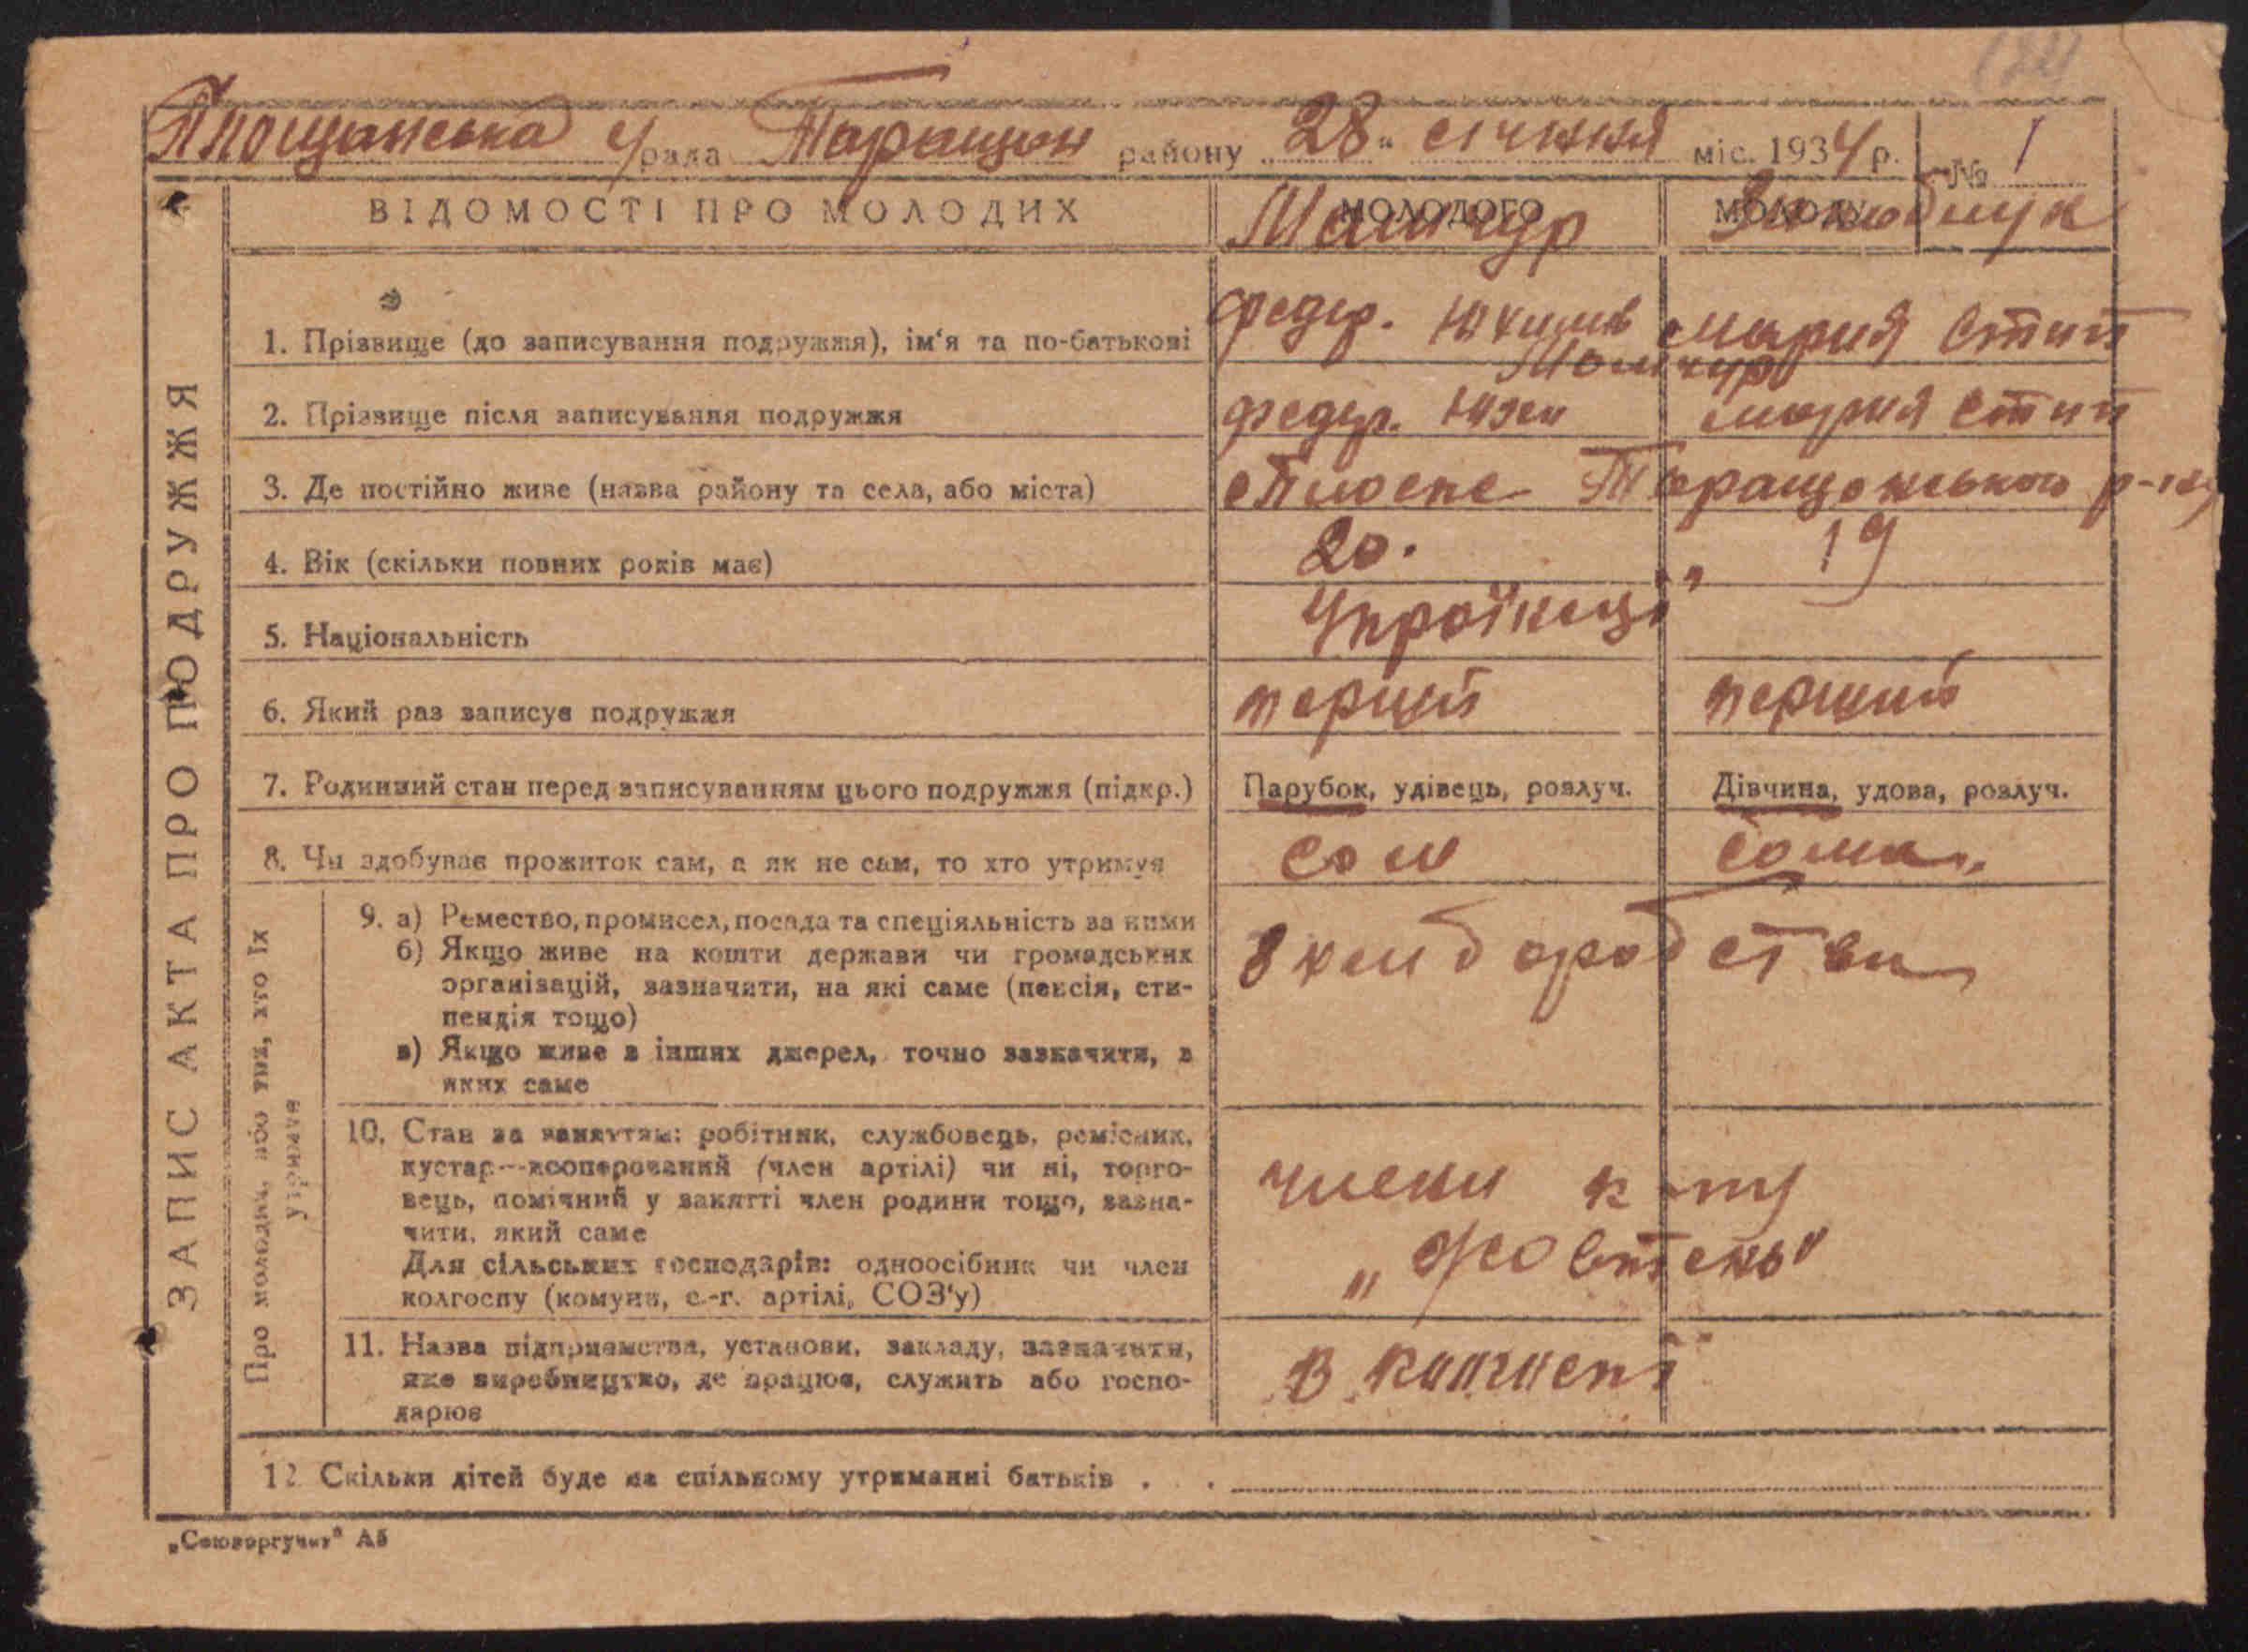 Площанська с/рада Таращан району 28 " січння міс. 1934 р. № 1
ВІДОМОСТІ ПРО МОЛОДИХ
МОЛОДОГО
МОЛОДУ
ЗАПИС АКТА ПРО ПОДРУЖЖЯ
1. Прізвище (до записування подружжя), ім'я та по-батькові
федор. мария Стип
2. Прізвище після записування подружжя
федор. мария Стип
3. Де постійно живе (назва району та села, або міста)
Таращанського р-ну
4. Вік (скільки повних років має)
20. 19
5. Національність
Українці
6. Який раз записує подружжя
перший перший
7. Родинний стан перед записуванням цього подружжя (підкр.)
Парубок, удівець, розлуч. Дівчина, удова, розлуч.
8. Чи здобуває прожиток сам, а як не сам, то хто утримує
сам сама
Про молодих, або тих, хто їх
утримує
9. а) Ремество, промисел, посада та спеціяльність за ними
б) Якщо живе на кошти держави чи громадських
організацій, зазначити, на які саме (пенсія, сти-
пендія тощо)
в) Якщо живе з інших джерел, точно зазначити, з
яких саме
10. Стан за заняттям: робітник, службовець, ремісник,
кустар—кооперований (член артілі) чи ні, торго-
вець, помічний у занятті член родини тощо, зазна-
чити, який саме
Для сільських господарів: одноосібник чи член
колгоспу (комуна, с.-г. артілі, СОЗ'у)
члени к-пу
„Жовтень"
11. Назва підприємства, установи, закладу, зазначити,
яке виробництво, де працює, служить або госпо-
дарює
В колгоспі
12 Скільки дітей буде на спільному утриманні батьків . .
„Союзоргучит" А5